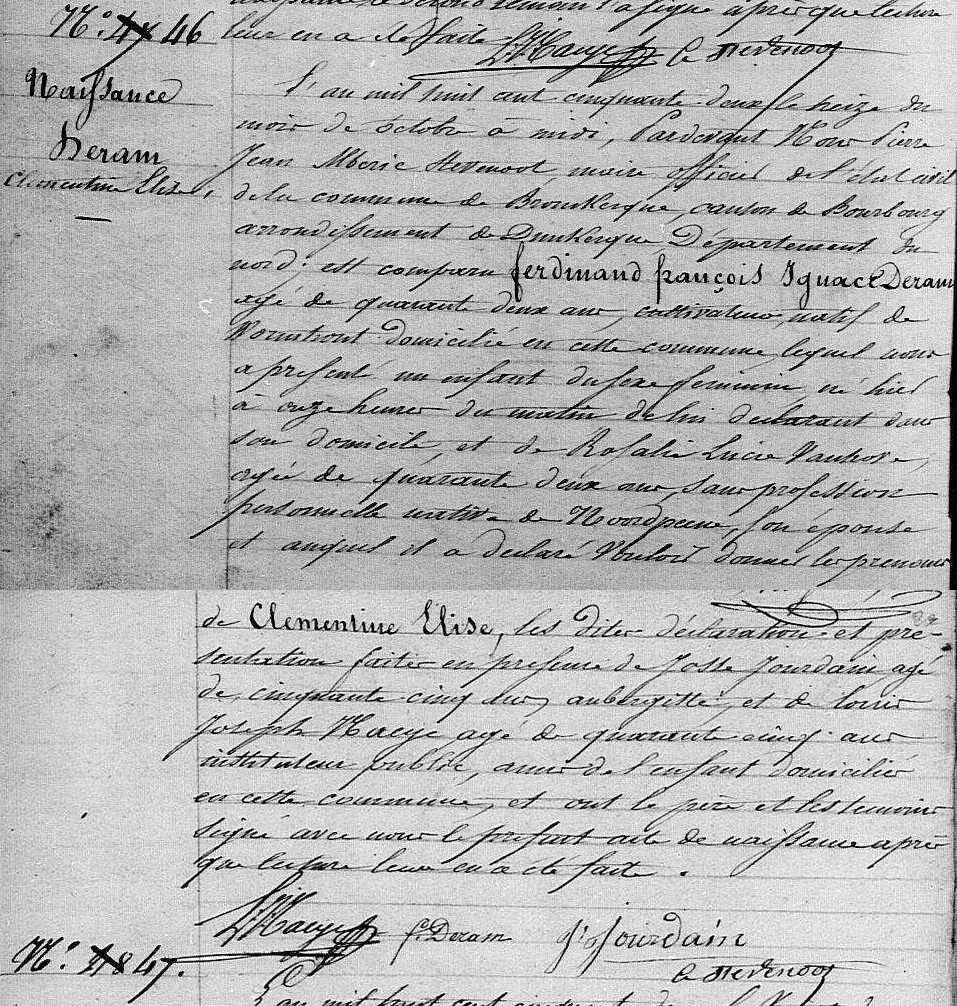 leur en a été faite. C. Stevenoot
N.º 47 46
Naissance
Deram
Clementine Elise,
L'an mil huit cent cinquante deux le seize du
mois de octobre à midi, Pardevant Nous Pierre
Jean Alberic Stevenoot, maire officier de l'état civil
de la commune de Brouckerque, canton de Bourbourg
arrondissement de Dunkerque Département du
nord; est comparu ferdinand françois Ignace Deram
agé de quarante deux ans, cultivateur, natif de
domicilié en cette commune, lequel nous
a présenté un enfant du sexe feminin, né hier
à onze heures du matin de lui declarant dans
son domicile, et de Rosalie Lucie Vanhove,
agée de quarante deux ans, sans profession
personnelle native de Noordpeene, son épouse
et auquel il a declaré vouloir donner les prenoms
de Clementine Elise, les dites déclaration et pré-
sentation faites en présence de Josse Jourdain agé
de cinquante cinq ans, aubergiste, et de Louis
Joseph Haeye agé de quarante cinq ans
instituteur public, amis de l'enfant domiciliés
en cette commune, et ont le père et les temoins
signé avec nous le présent acte de naissance après
que lecture leur en a été faite.
L. J. Haeye f. Deram J. Jourdain
C. Stevenoot
N.º 48 47.
L'an mil huit cent cinquante